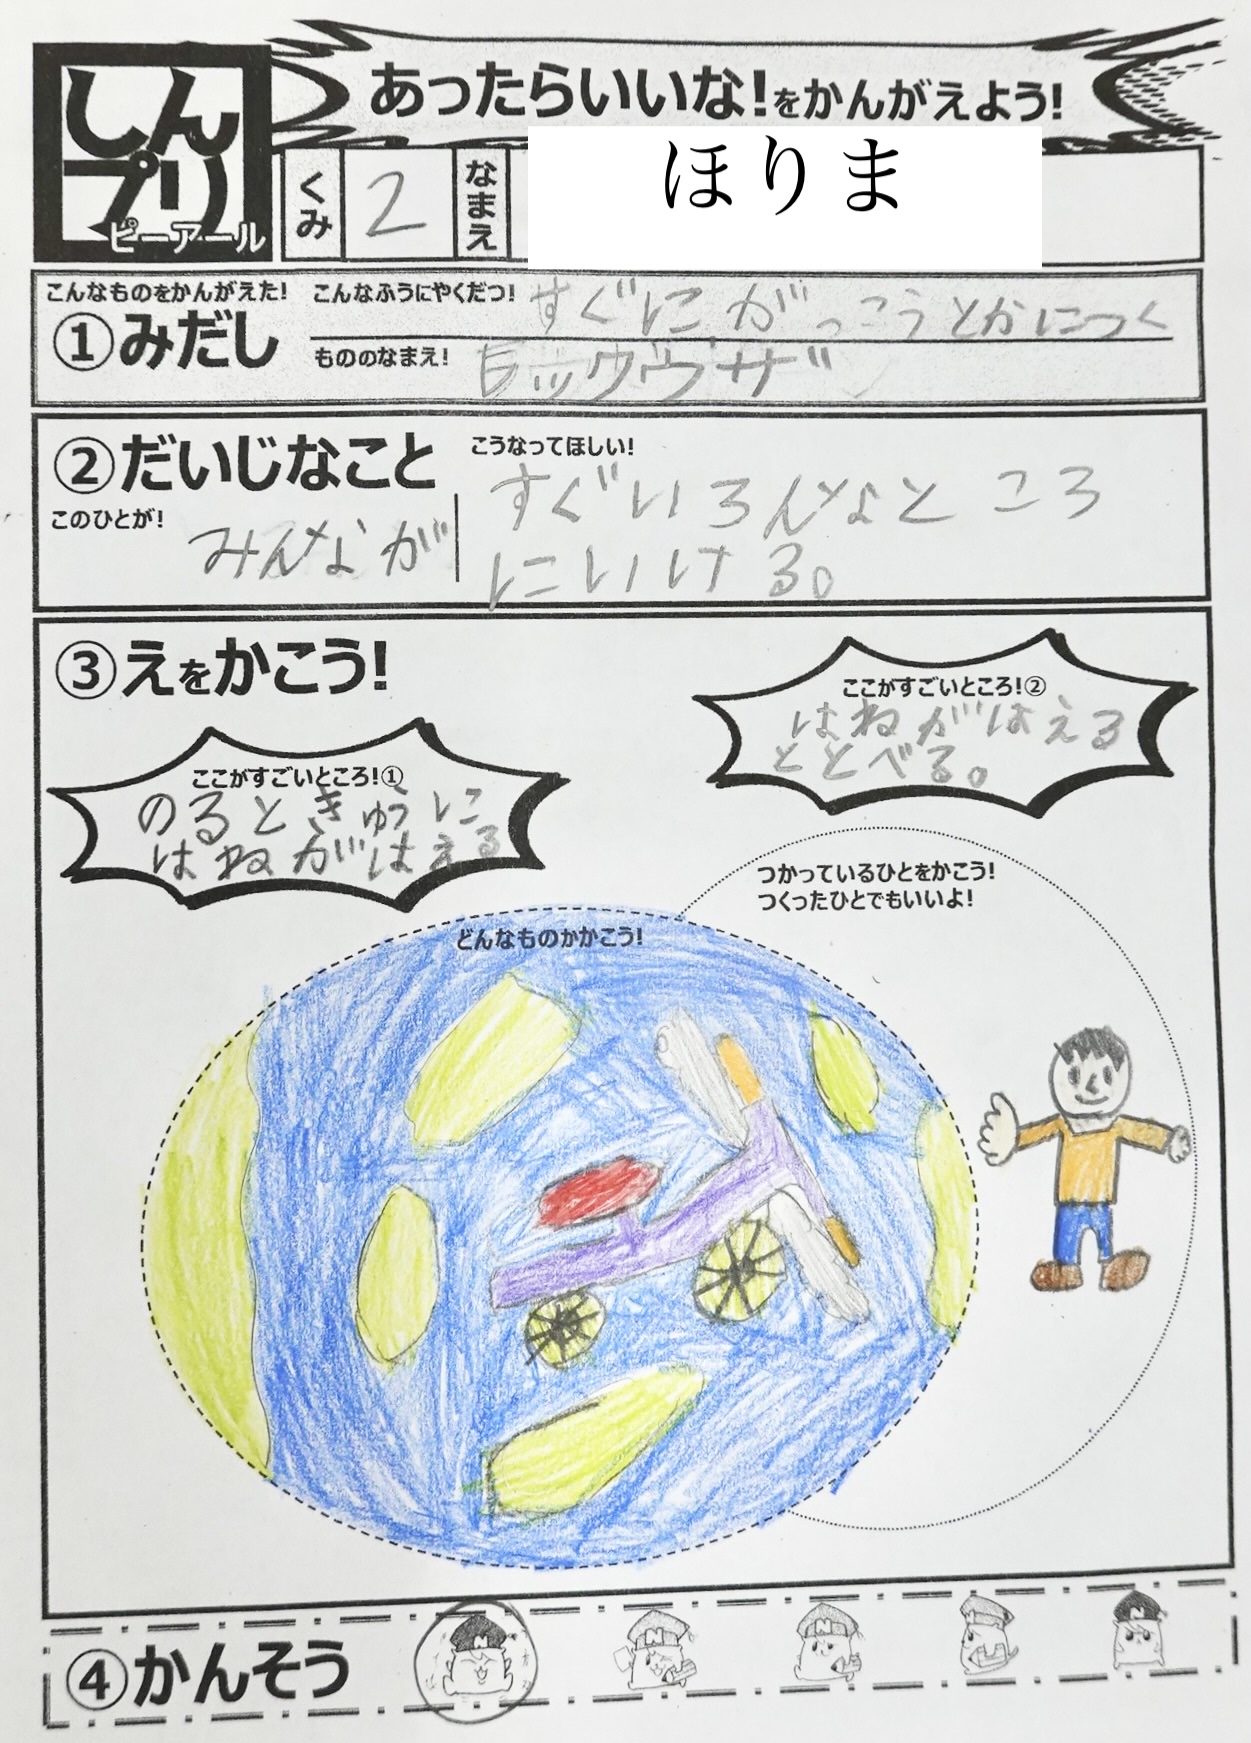 しんプリ
ピーアール
あったらいいな!をかんがえよう!
くみ 2 なまえ ほりま
こんなものをかんがえた!
①みだし
こんなふうにやくだつ! すぐにがっこうとかにつく
もののなまえ! ックウザ
②だいじなこと
このひとが! みんなが
こうなってほしい!
すぐいろんなところ
にいける。
③えをかこう!
ここがすごいところ!①
のるときゅうに
はねがはえる
ここがすごいところ!②
はねがはえる
ととべる。
つかっているひとをかこう!
つくったひとでもいいよ!
どんなものかかこう!
④かんそう
N
N
N
N
N